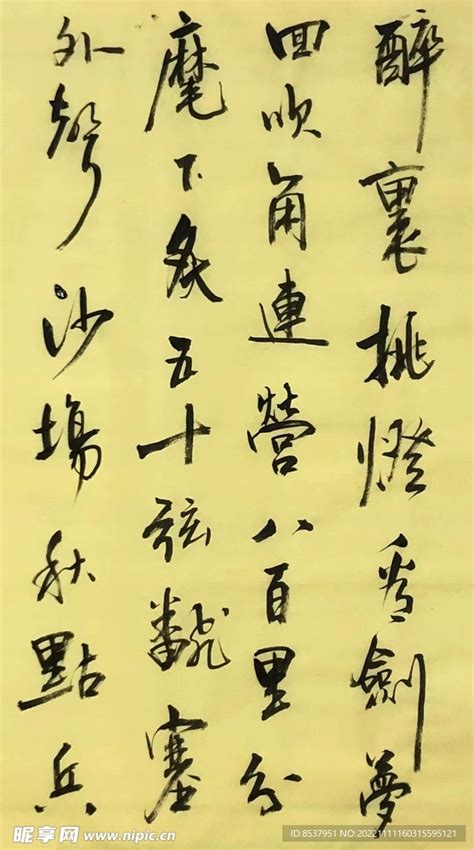 醉裏挑燈看劍夢
回吹角連營八百里分
麾下炙五十弦飜塞
外聲沙場秋點兵
昵享网 www.nipic.cn
ID:8537951 NO:20221111160315595121